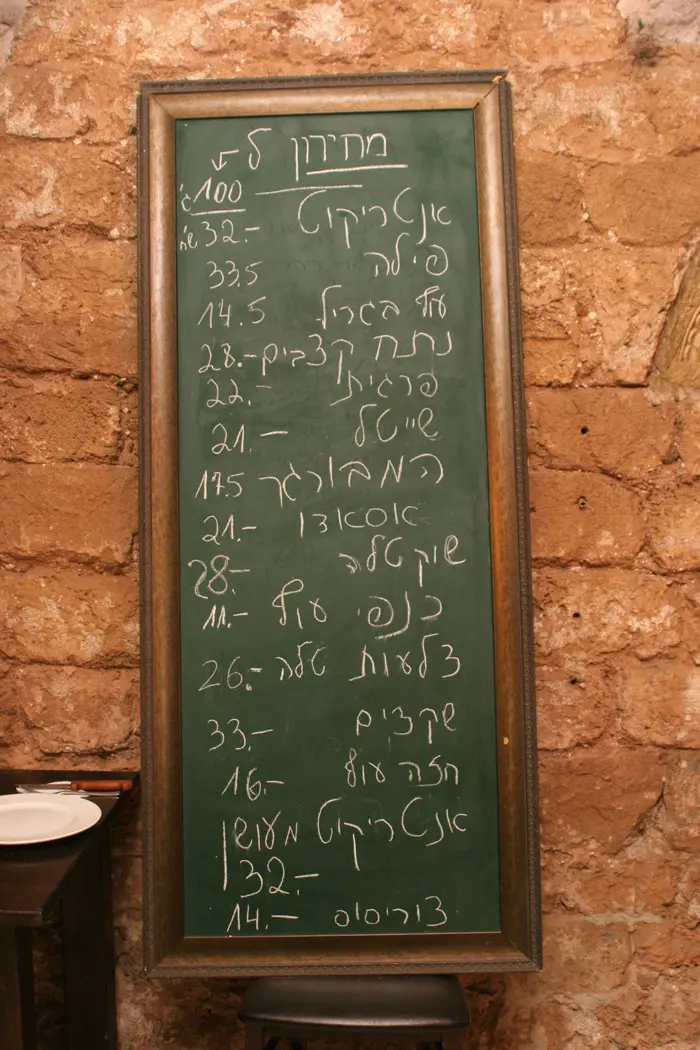 מחירון ל
100 ג'
אנטריקוט 32.- ש"ח
פילה 33.5
עוף בגריל 14.5
נתח קצבים 28.-
פרגית 22.-
שייטל 21.-
המבורגר 17.5
אסאדו 21.-
שוק טלה 28.-
כנפי עוף 11.-
צלעות טלה 26.-
שקצים 33.-
חזה עוף 16.-
אנטריקוט מעושן
32.-
צוריסוס 14.-